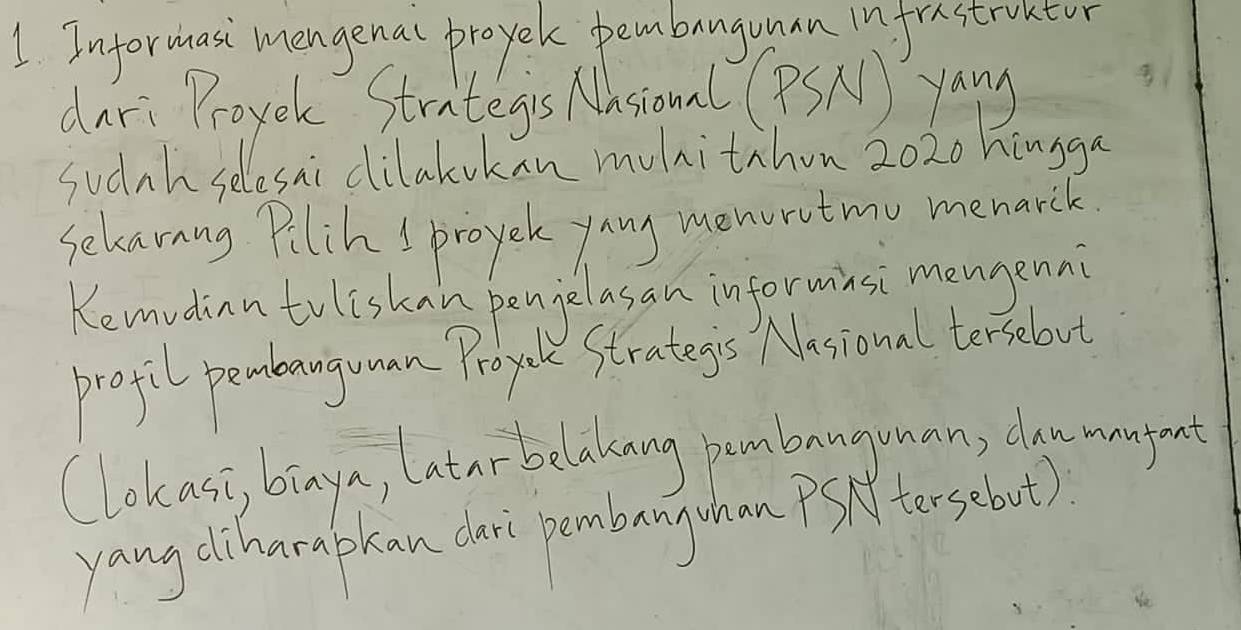 1. Informasi mengenai proyek pembangunan infrastruktur
dari Proyek Strategis Nasional (PSN) yang
sudah selesai dilakukan mulai tahun 2020 hingga
sekarang. Pilih 1 proyek yang menurutmu menarik.
Kemudian tuliskan penjelasan informasi mengenai
profil pembangunan Proyek Strategis Nasional tersebut
(Lokasi, biaya, latar belakang pembangunan, dan manfaat
yang diharapkan dari pembangunan PSN tersebut).